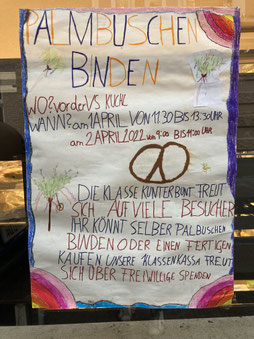 PALMBUSCHEN
BINDEN
WO? vor der VS KUCHL
WANN? am 1 APRIL VON 11:30 BIS 13:30 UHR
am 2 APRIL 2022 von 9:00 BIS 11:00 UHR
DIE KLASSE KUNTERBUNT FREUT
SICH AUF VIELE BESUCHER
IHR KÖNNT SELBER PALBUSCHEN
BINDEN ODER EINEN FERTIGEN
KAUFEN UNSERE KLASSENKASSA FREUT
SICH ÜBER FREIWILLIGE SPENDEN